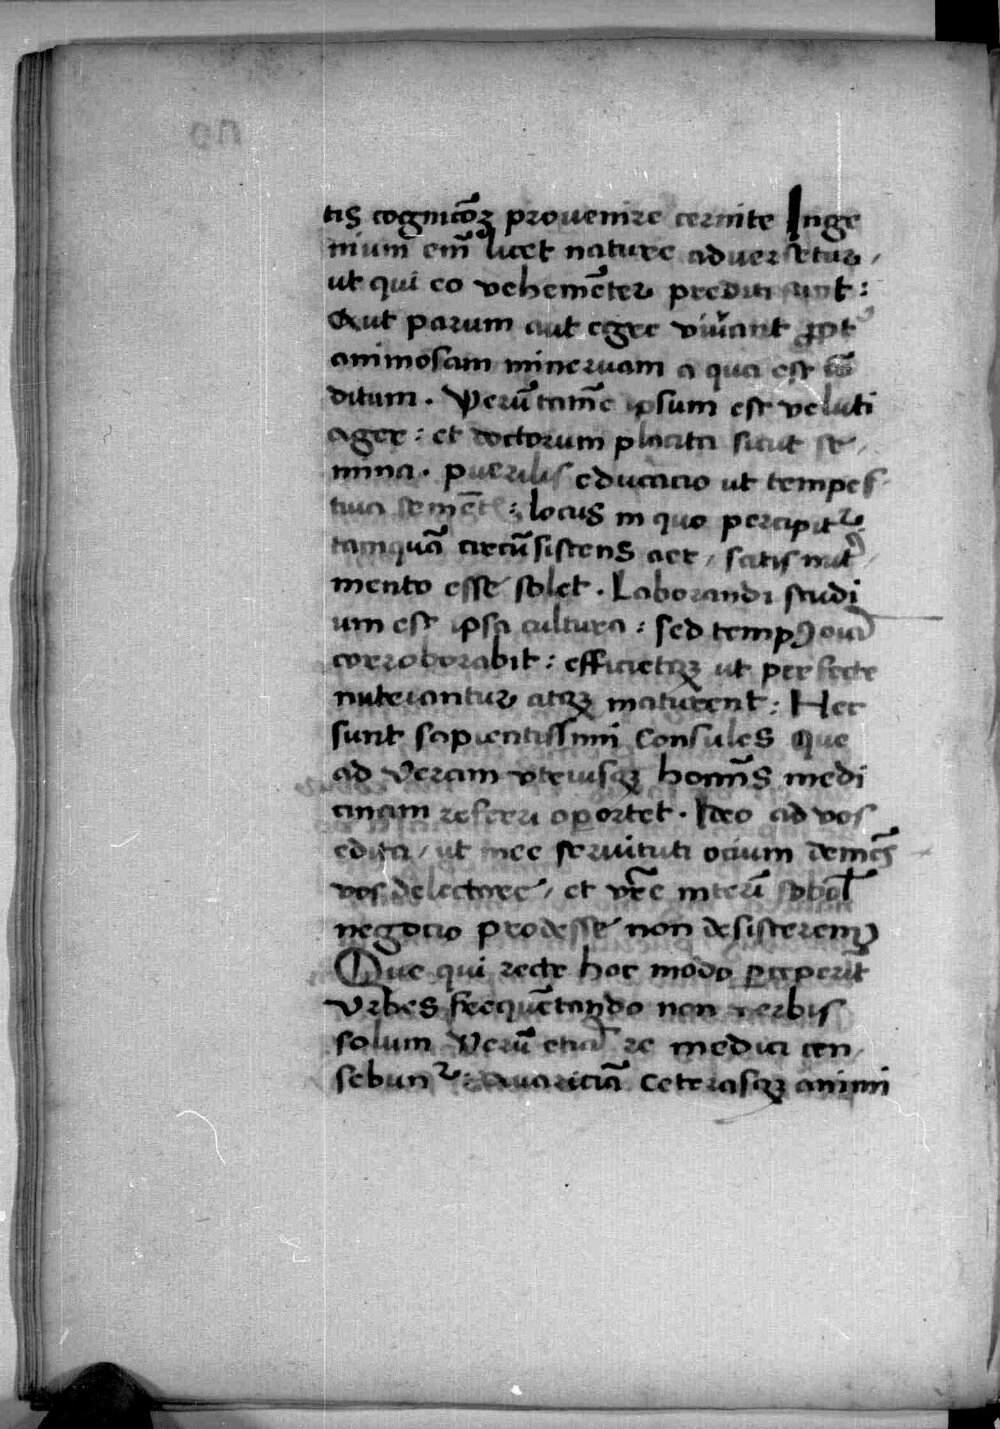 tis cognicōꝝ provenire cernite Inge
nium em̄ licet nature adversetur,
ut qui eo vehemēter prediti sunt:
Aut parum aut egre vivant ꝓpt᾽
animosam minervam a qua est
ditum. Verūtamē ipsum est veluti
ager: et doctorum placita sicut se,
mina. puerilis educacio ut tempes-
tiva locus in quo percipit᷑
tamquā circūsistens aer, satis nut
mento esse solet. Laborandi studi
um est ipsa cultura: sed tempꝯ
corroborabit: efficietqꝫ ut perfecte
nutriantur atqꝫ maturent: Hec
sunt sapientissimi Consules que
ad veram utriusqꝫ homīs medi
cinam referri oportet. Ideo ad vos
edita, ut mee servituti ocium demēs
vos delectare, et vr̄e interī sobol
negocio prodesse non desisteremꝯ
Que qui recte hoc modo ꝑceperīt
Urbes frequētando non verbis
solum Verū etiā re medici cen,
sebunt᷑: avariciā ceterasqꝫ animi